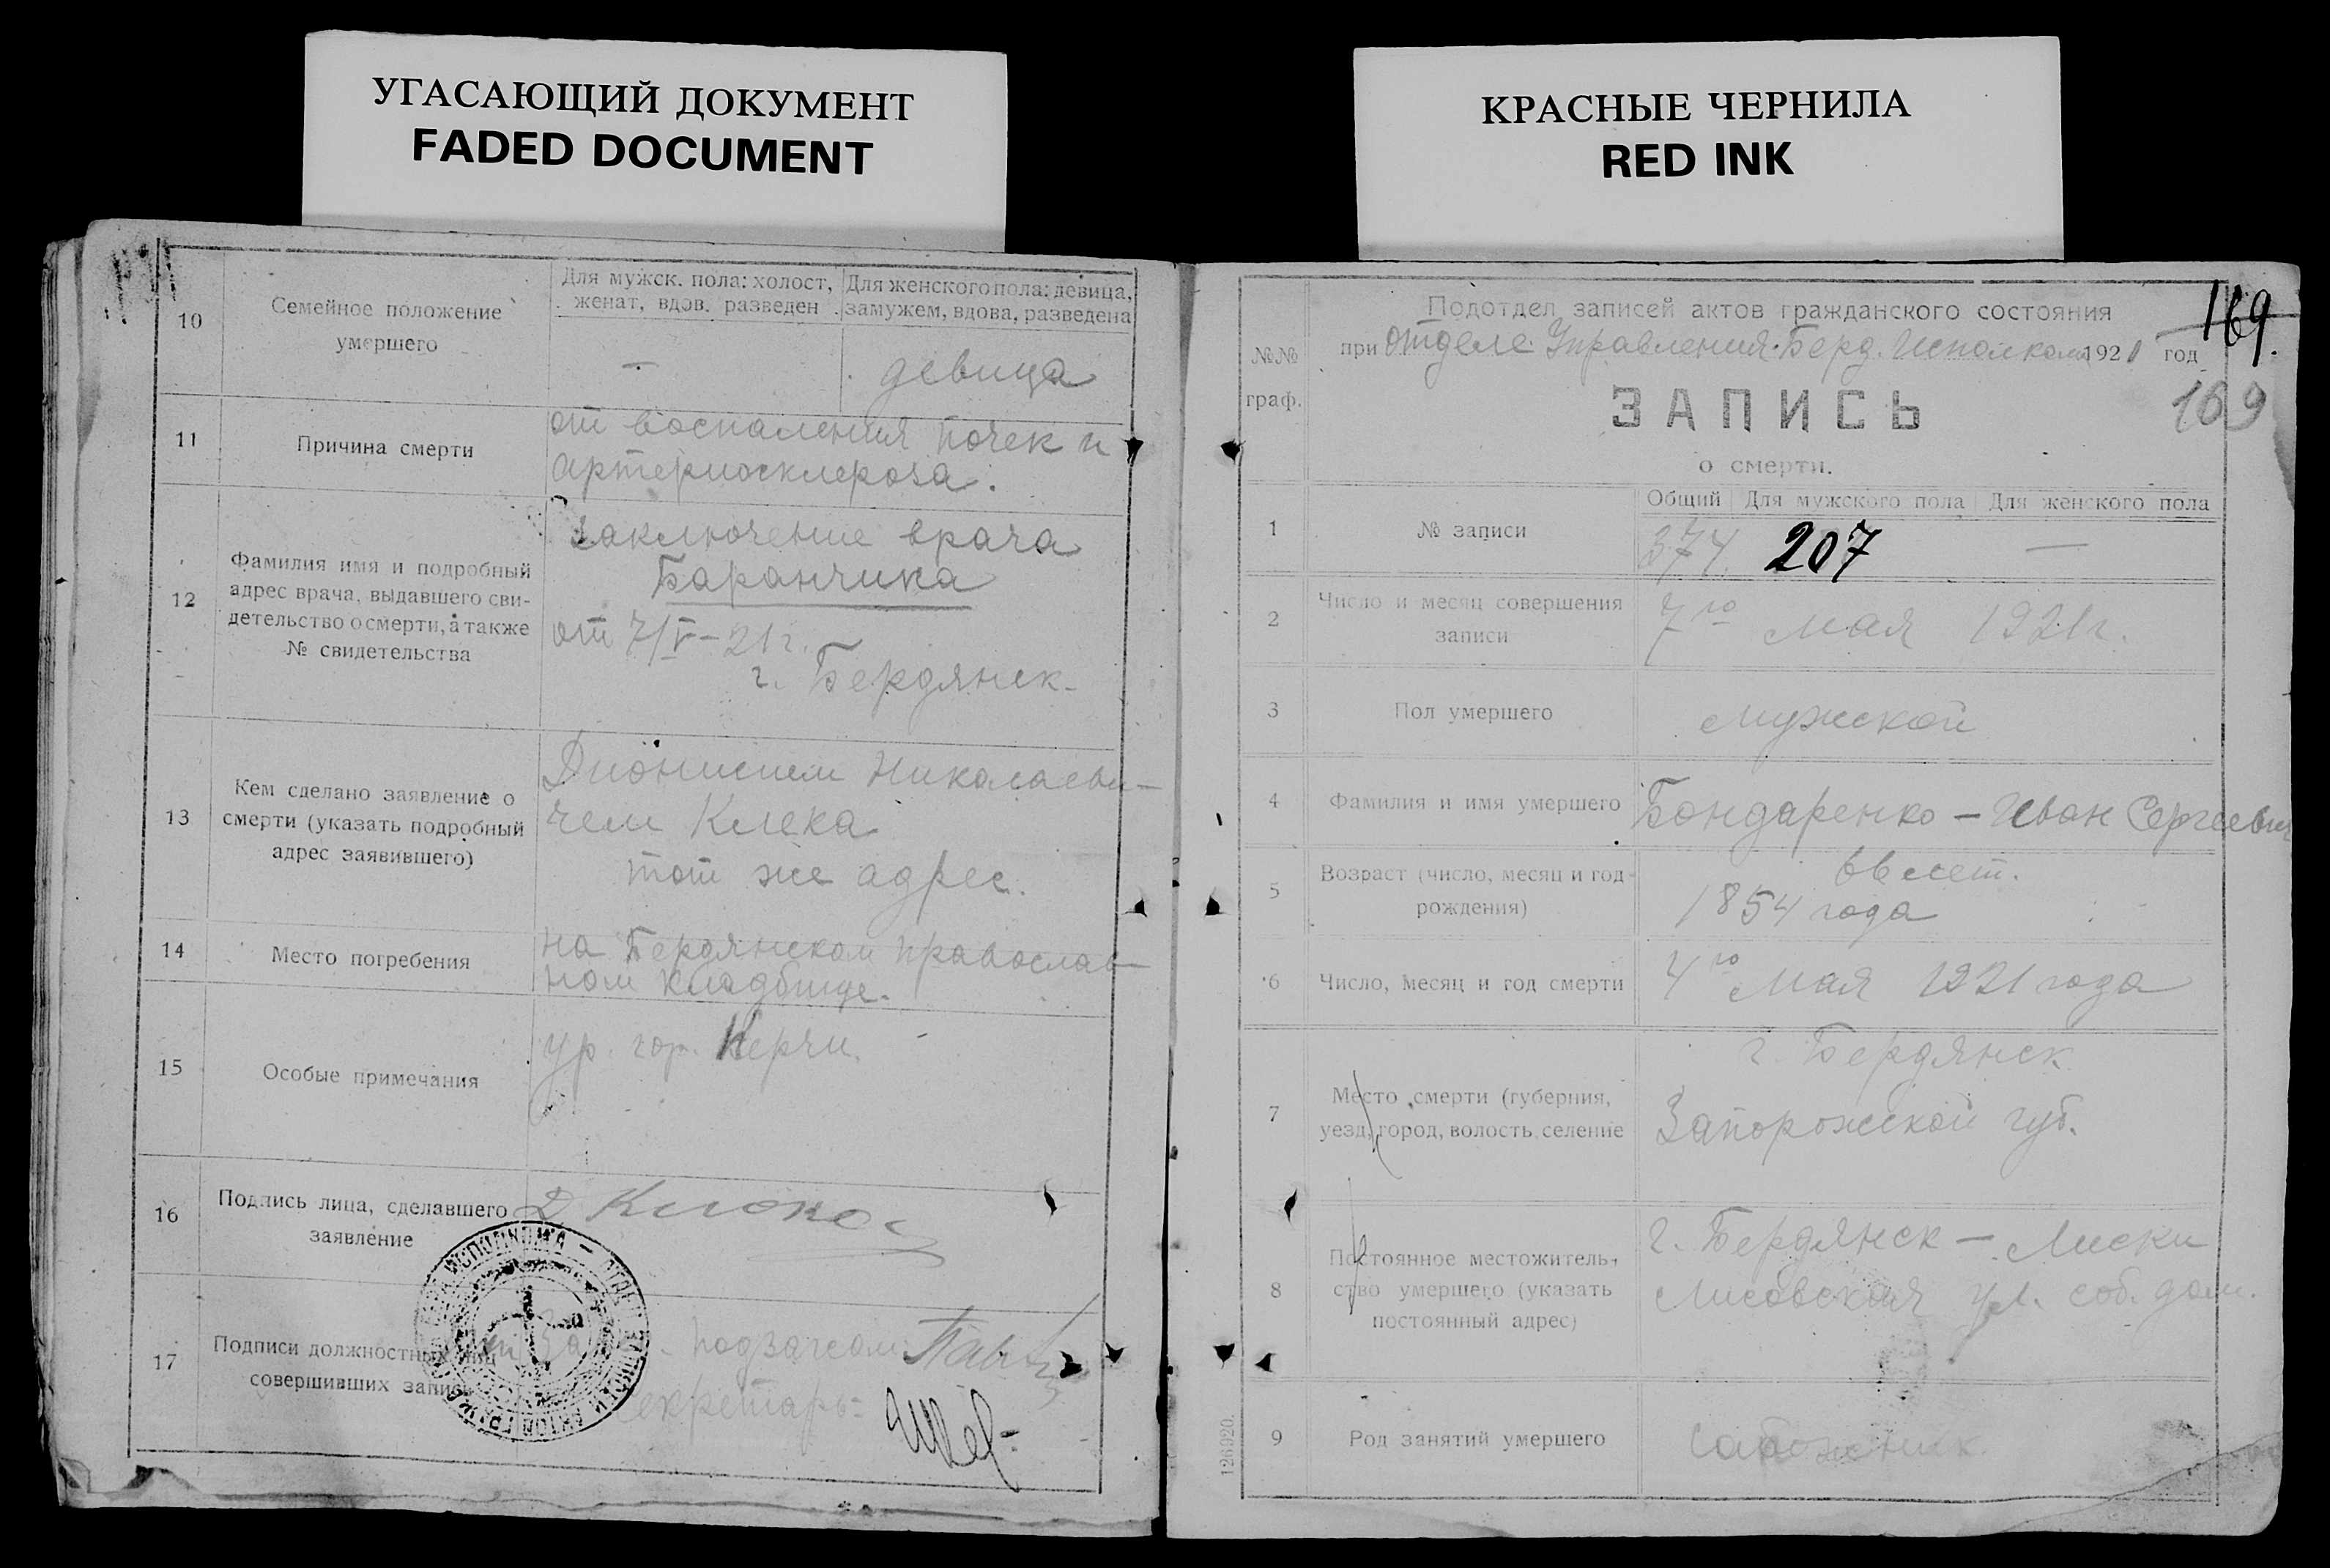 УГАСАЮЩИЙ ДОКУМЕНТ
FADED DOCUMENT
КРАСНЫЕ ЧЕРНИЛА
RED INK
10
Семейное положение
умершего
Для мужск. пола: холост,
женат, вдов. разведен
Для женского пола: девица,
замужем, вдова, разведена
—
девица
11
Причина смерти
от воспаления почек и
артериосклероза.
12
Фамилия имя и подробный
адрес врача, выдавшего сви-
детельство о смерти, а также
№ свидетельства
Заключение врача
Баранчика
от 7/V–21 г.
г. Бердянск.
13
Кем сделано заявление о
смерти (указать подробный
адрес заявившего)
Дионисием Николаеви-
чем Клека
тот же адрес.
14
Место погребения
на Бердянском православ-
ном кладбище.
15
Особые примечания
ур. гор. Керчи.
16
Подпись лица, сделавшего
заявление
17
Подписи должностных лиц
совершивших запись
подзагсом
Секретарь:
Подотдел записей актов гражданского состояния
№№
граф.
при отделе Управления Берд. Исполкома 1921 год
169.
169
ЗАПИСЬ
о смерти.
Общий Для мужского пола Для женского пола
1
№ записи
374. 207 —
2
Число и месяц совершения
записи
7го мая 1921 г.
3
Пол умершего
мужской
4
Фамилия и имя умершего
Бондаренко — Иван Сергеевич
5
Возраст (число, месяц и год
рождения)
66 лет.
1854 года
6
Число, месяц и год смерти
4го мая 1921 года
7
Место смерти (губерния,
уезд, город, волость, селение
г. Бердянск
Запорожской губ.
8
Постоянное местожитель-
ство умершего (указать
постоянный адрес)
г. Бердянск — Лиски
Лисовская ул. соб. дом.
9
Род занятий умершего
сапожник
126920.